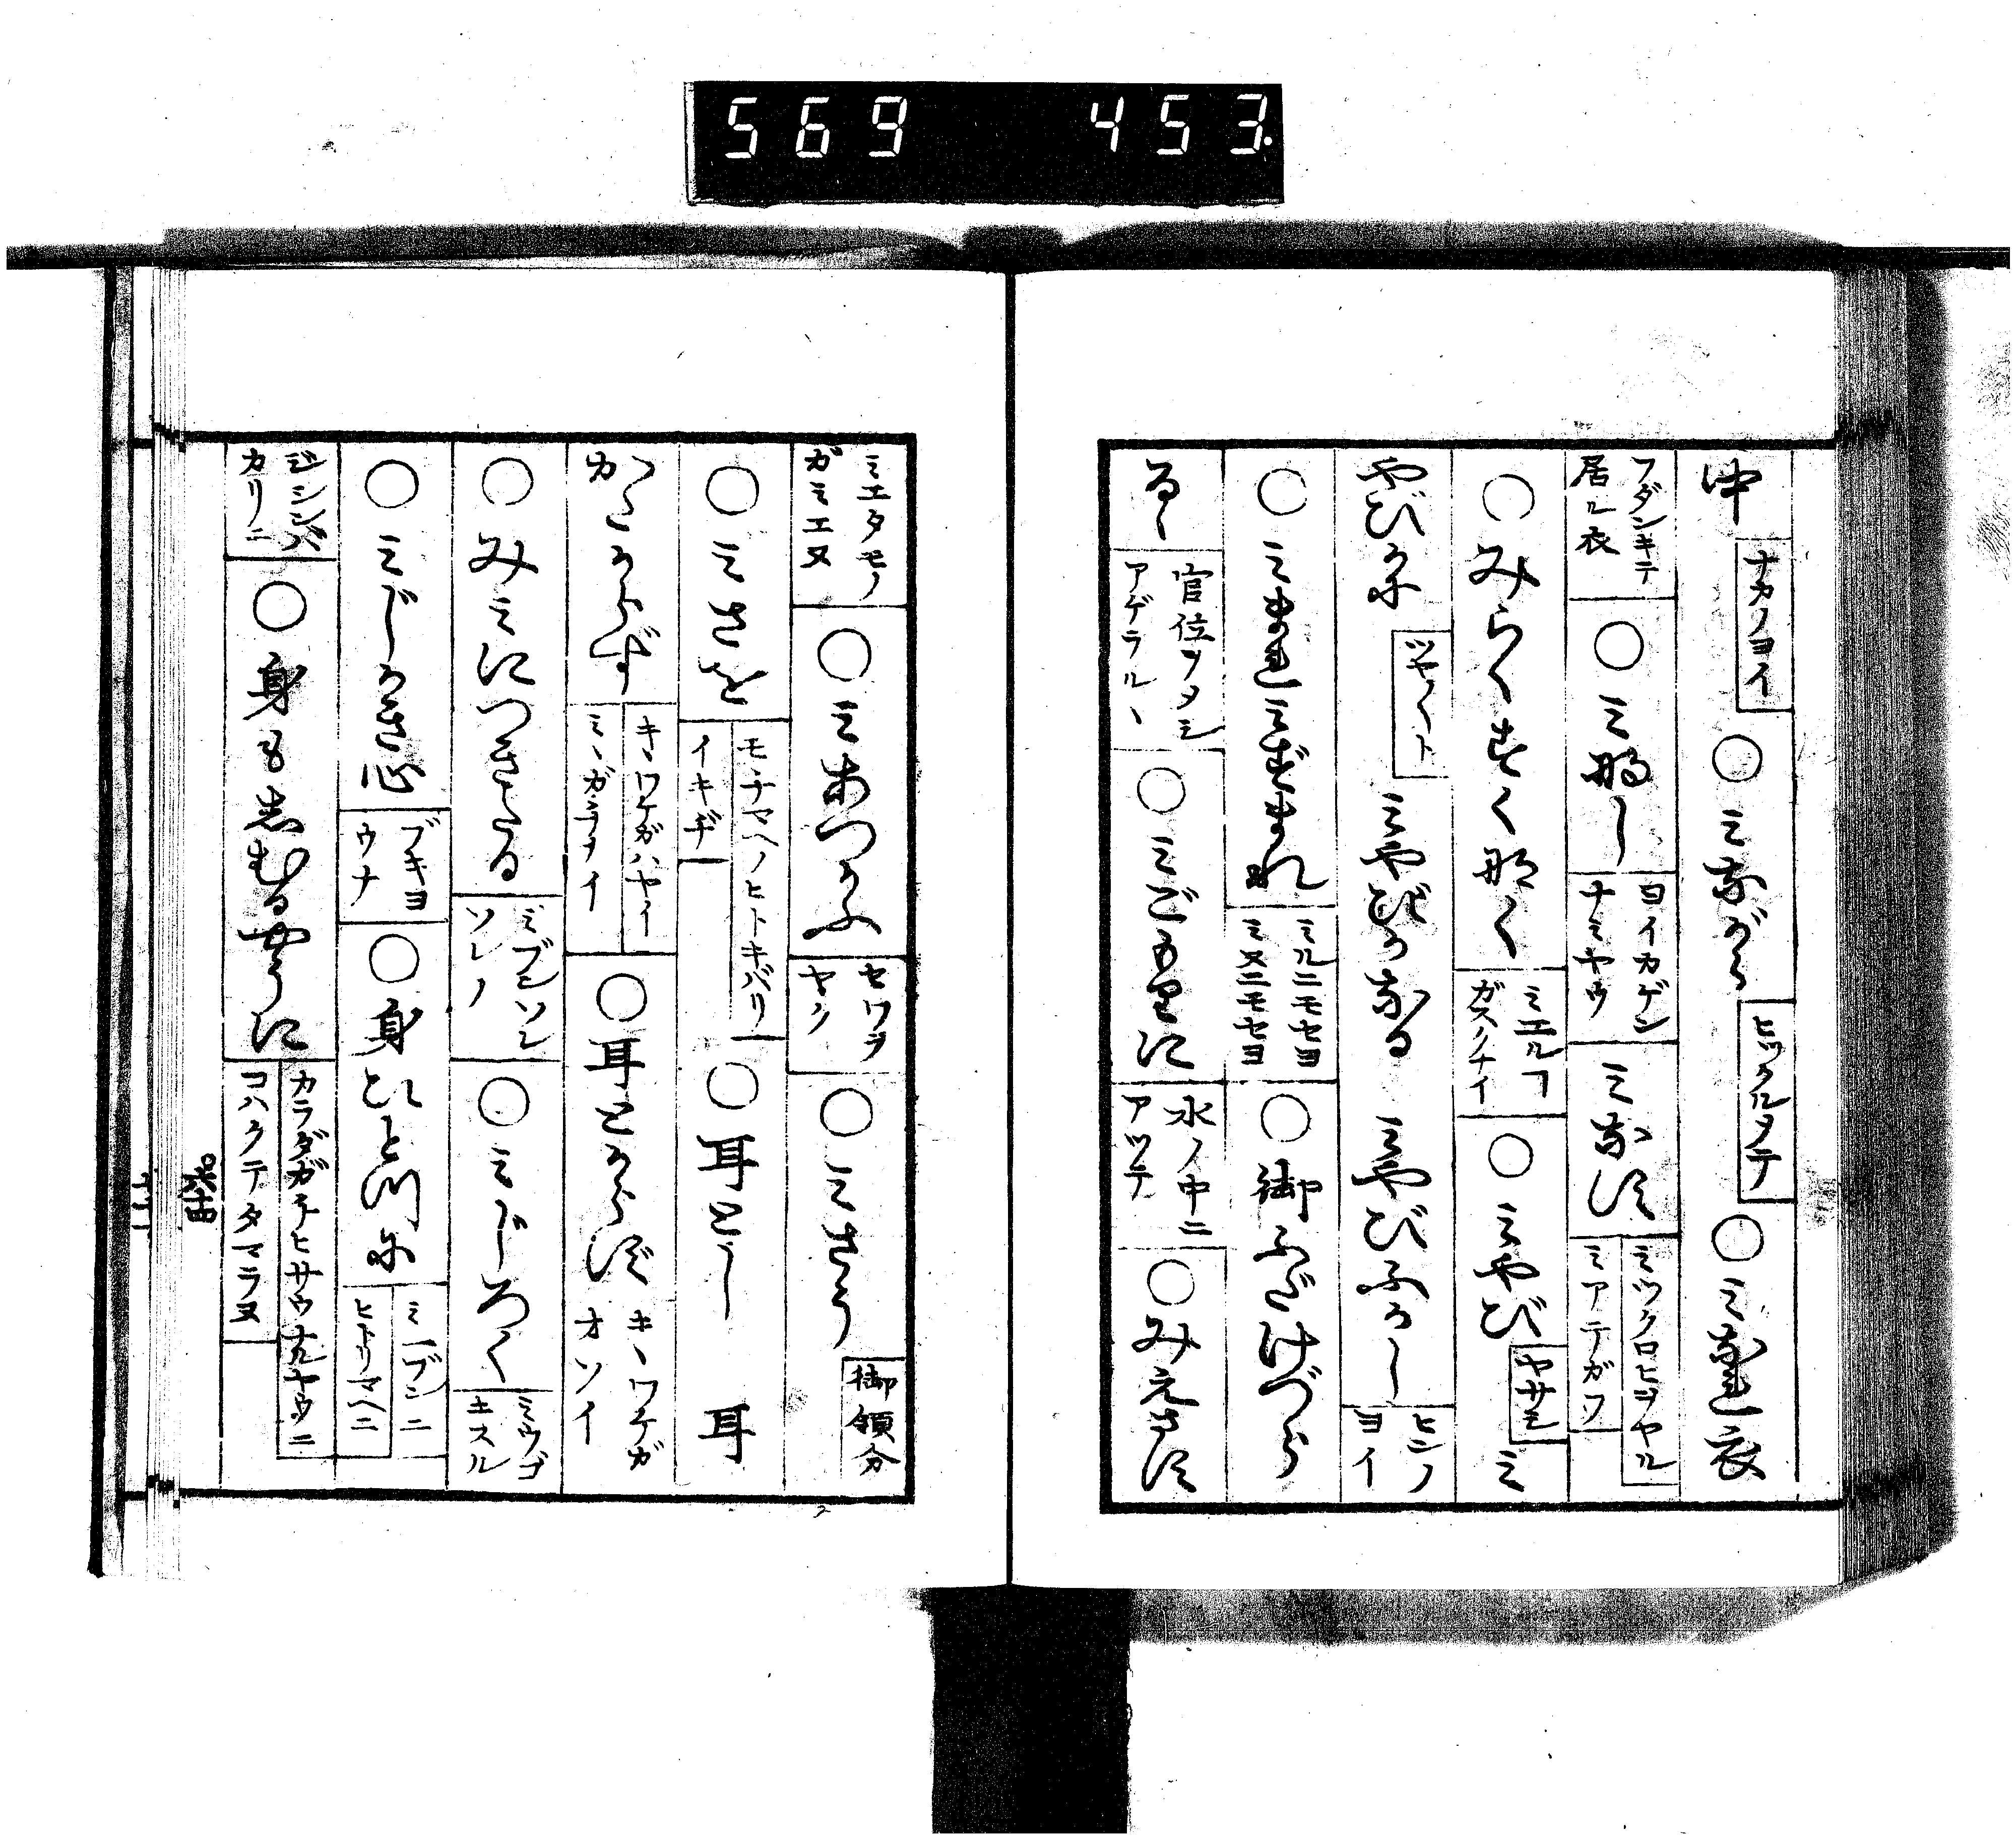 569 453.
中 ナカノヨイ ○ミながら ヒツクルメテ ○ミなれ衣
フダンキテ居ル衣 ○ミ那し ヨイカゲンナミヤウ ミなす ミツクロヒヲヤル ミアテガフ
○みらくすくなく ミエルヿガスクナイ ○ミやび ヤサシ ミ
やびかに ツヤ〱ト ミやびかなる ミやびふかし ヒンノヨイ
○ミまれミずまれ ミルニモセヨミヌニモセヨ ○御ふだけづら
る 官位ヲメシアゲラル ○ミごもりに 水ノ中ニアツテ ○みえます
ミエタモノガミエヌ ○ミあつかふ セワヲヤク ○ミさう 御領分
○ミさを モチマヘノヒトキバリイキヂ ○耳とし 耳
かしかからず キヽワケガハヤイ ミヽガチナイ ○耳とからず キヽワケガオソイ
○みミにつきたる ミブンソレソレノ ○ミじろく ミウゴキスル
○ミじかき心 ブキヨウナ ○身ひとつに ミ一ブンニヒトリマヘニ
ジシンバカリニ ○身もしむるやうに カラダガチヒサウナルヤウニコハクテタマラヌ